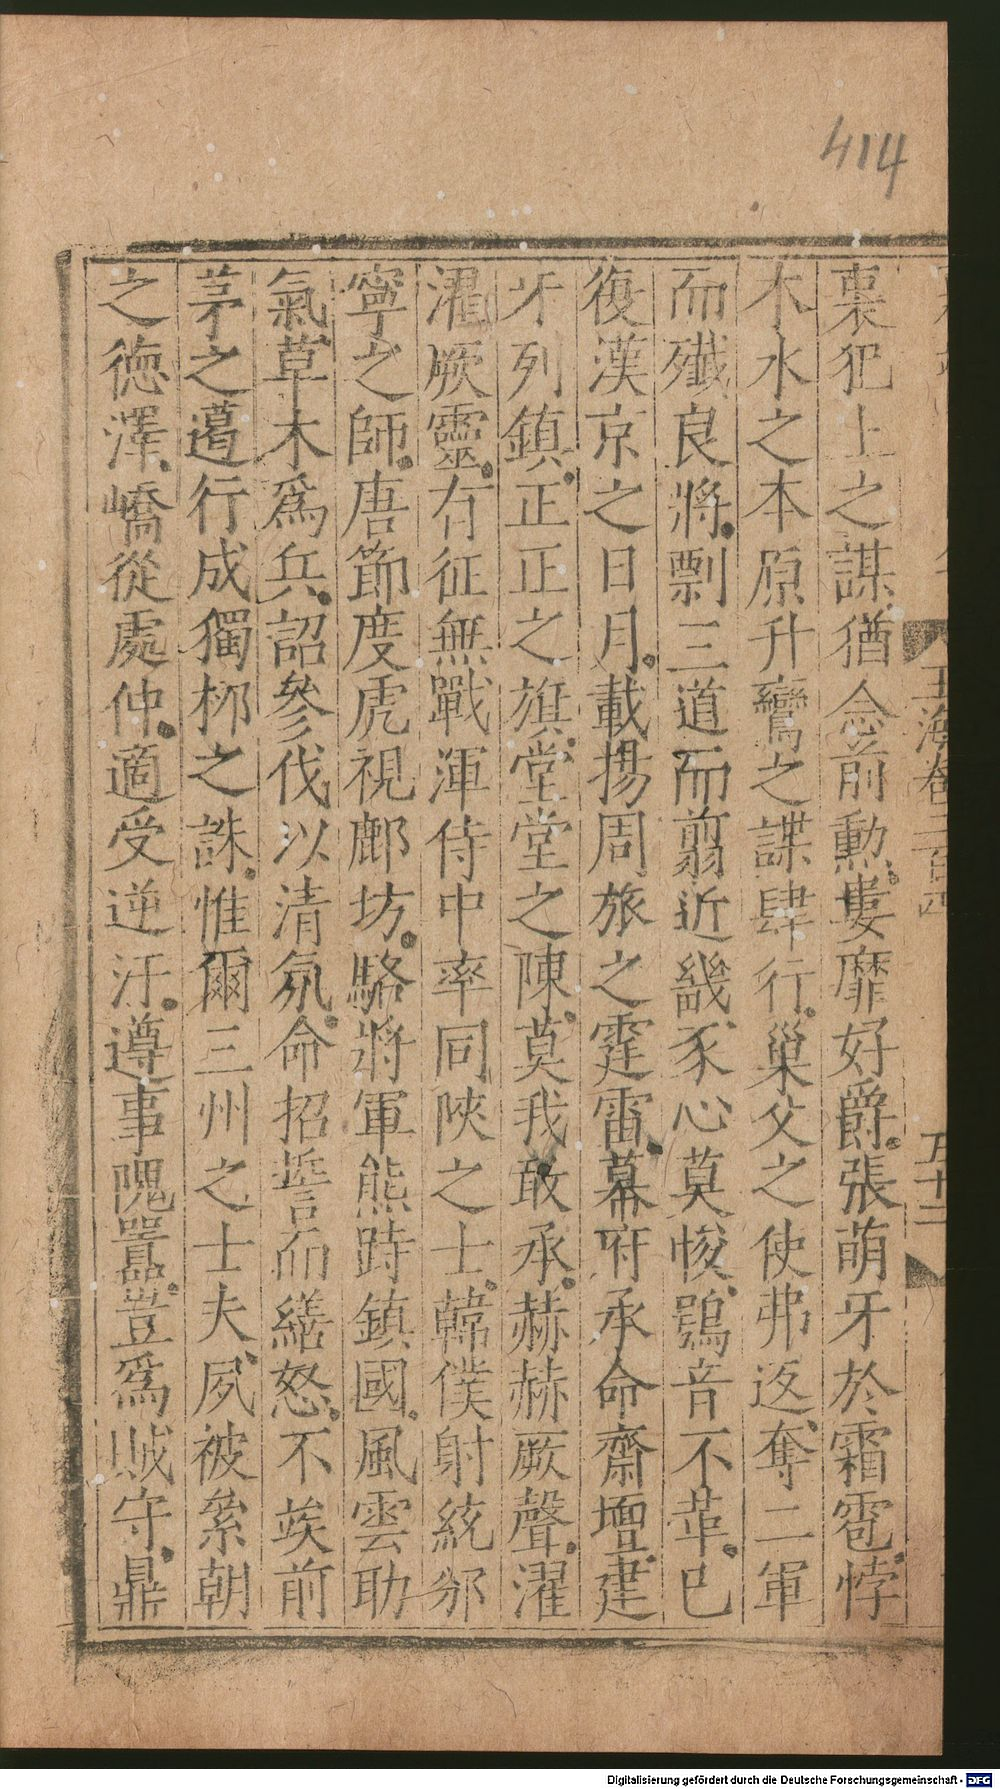 414
裏犯上之謀猶念前勳婁靡好爵張萌牙於霜雹悖
木水之本原升鸞之諜肆行巢父之使弗返奪二軍
而殱良將剽三道而翦近畿豕心莫悛鴞音不革已
復漢京之日月載揚周旅之霆雷幕府承命齋壇建
牙列鎮正正之旗堂堂之陳莫我敢承赫赫厥聲濯
濯厥靈有征無戰渾侍中率同陝之士韓僕射統邠
寧之師唐節度虎視鄜坊駱將軍熊跱鎮國風雲助
氣草木爲兵詔參伐以清氛命招誓而繕怒不竢前
茅之邁行成獨桞之誅惟爾三州之士夫夙被絫朝
之德澤嶠從處仲適受逆汙遵事隗囂豈爲賊守鼎
玉海卷二百四
五十二
Digitalisierung gefördert durch die Deutsche Forschungsgemeinschaft - DFG